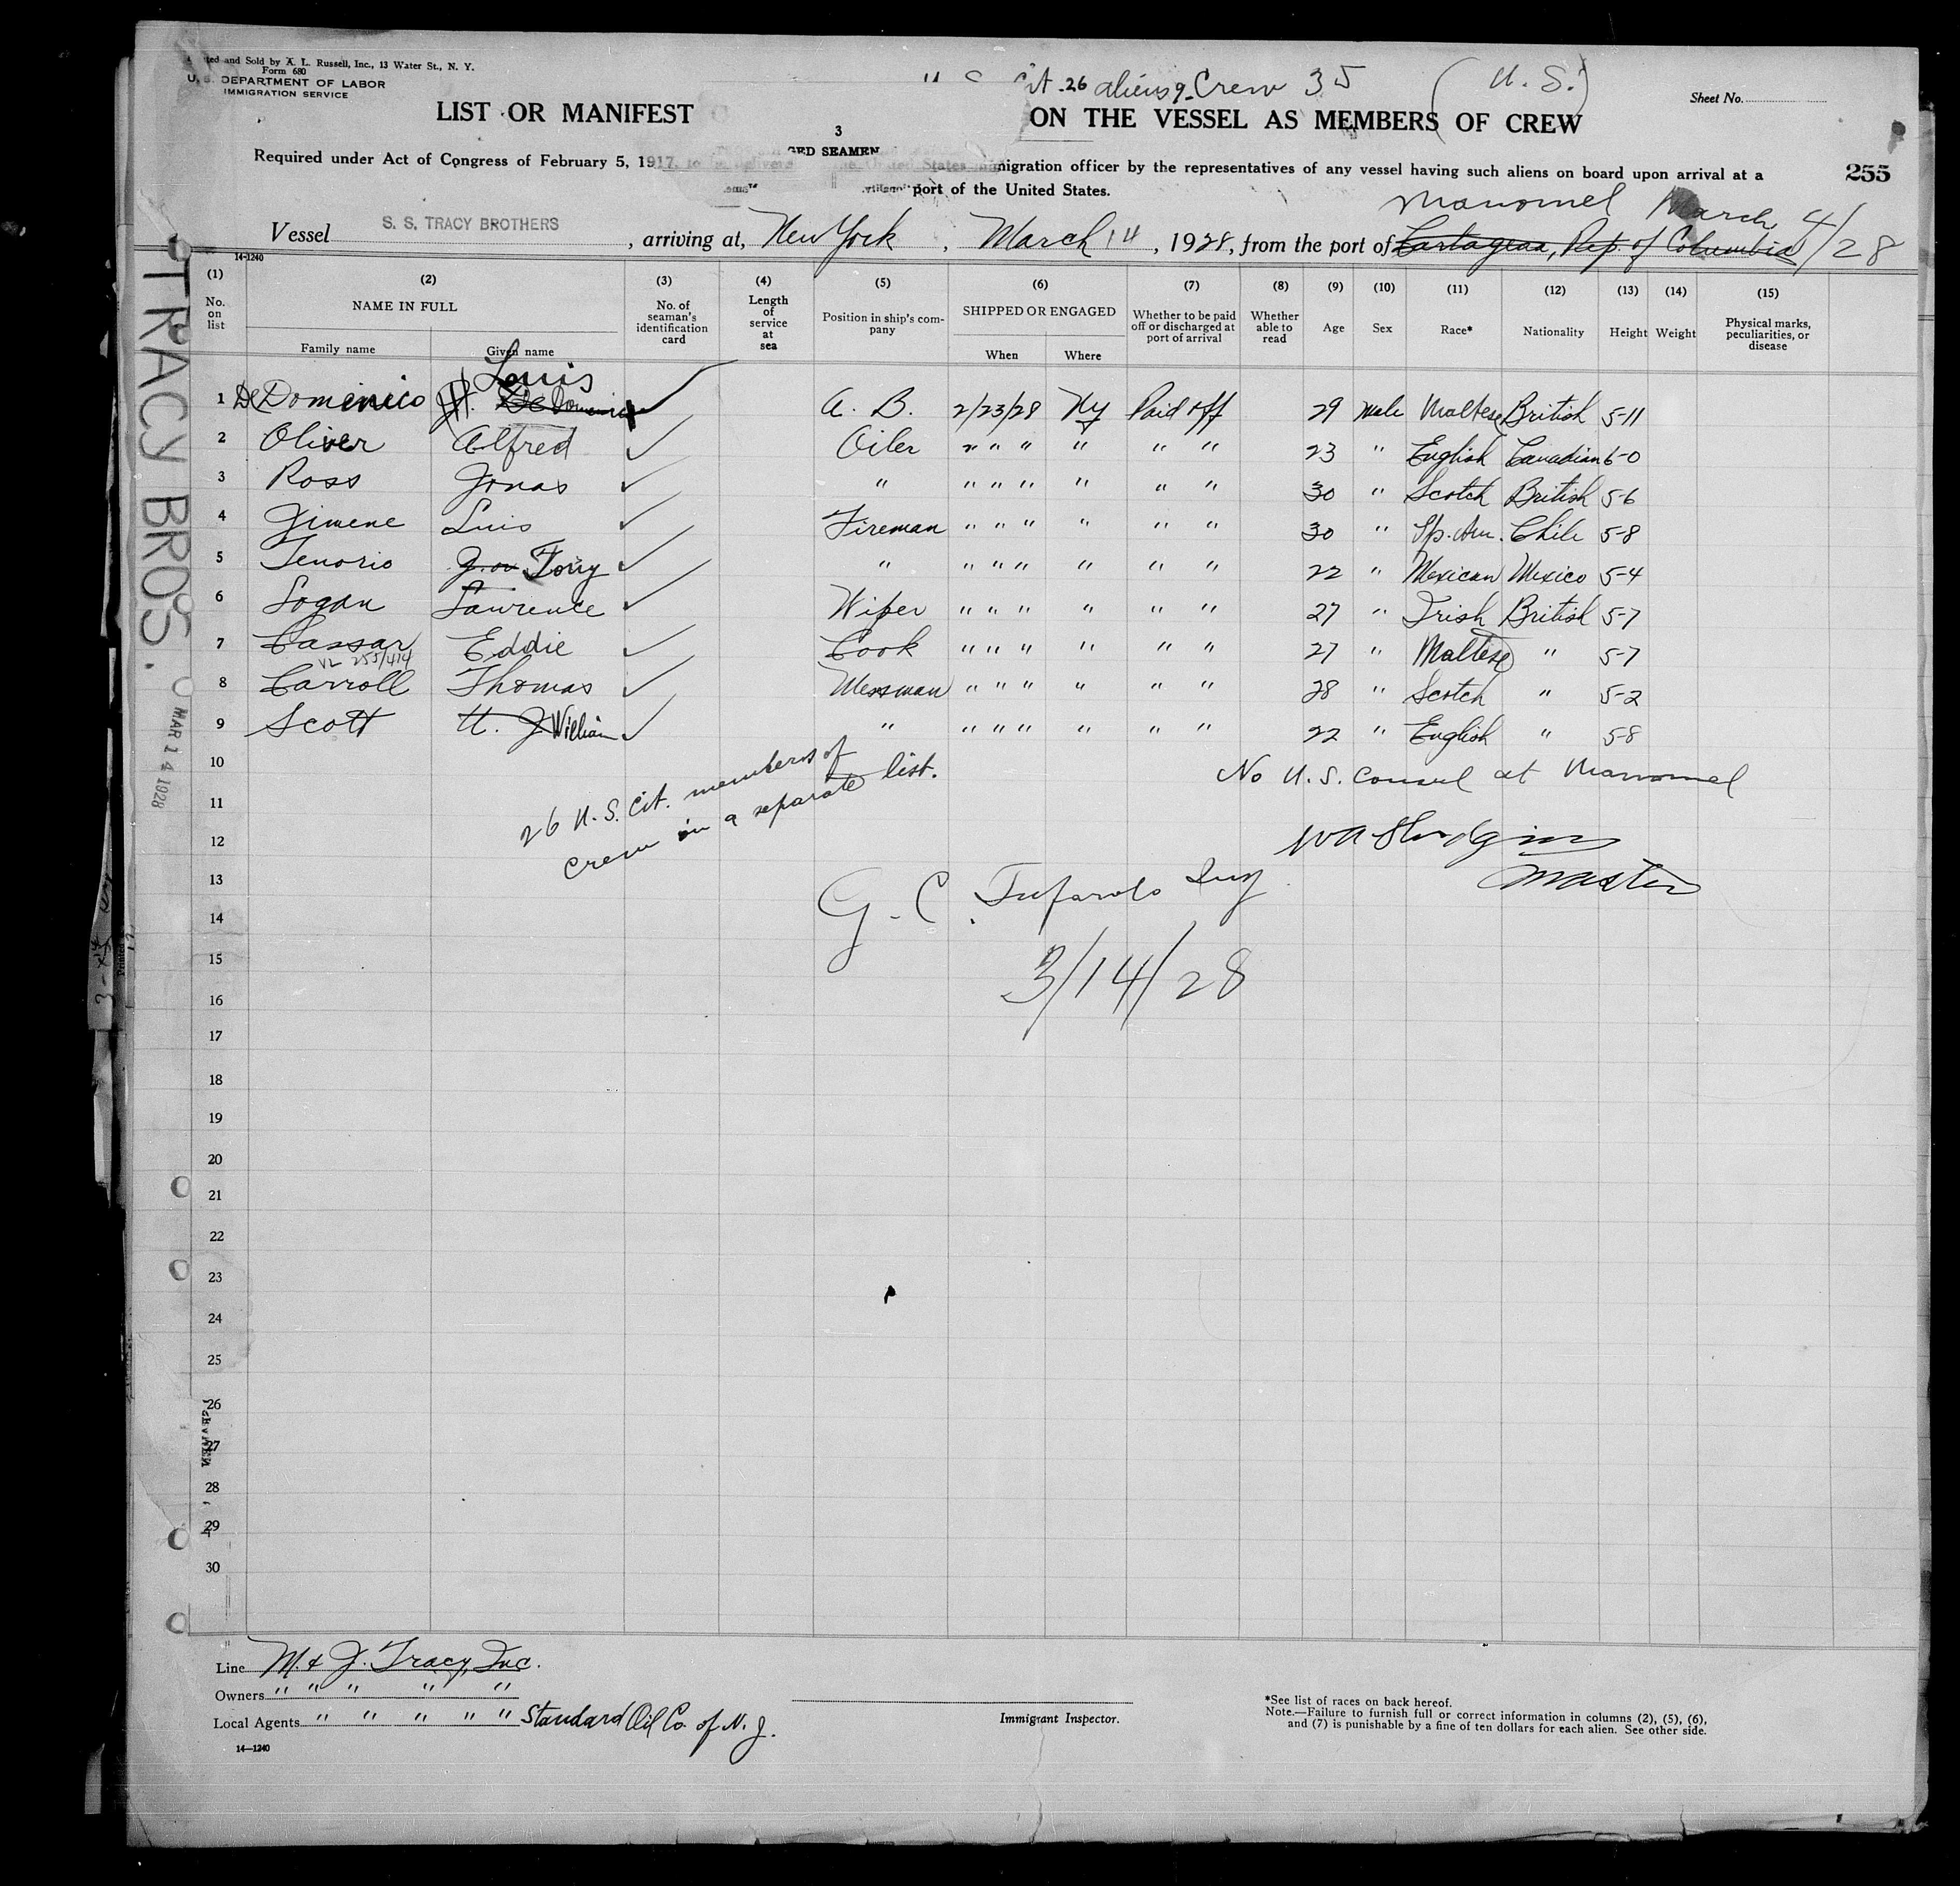 ted and Sold by A. L. Russell, Inc., 13 Water St., N. Y.
Form 680
U. S. DEPARTMENT OF LABOR
IMMIGRATION SERVICE
Cit. 26 aliens 9 Crew 35 (U. S.)
Sheet No.
LIST OR MANIFEST ON THE VESSEL AS MEMBERS OF CREW
3
GED SEAMEN
Required under Act of Congress of February 5, 1917, to be delivered the United States migration officer by the representatives of any vessel having such aliens on board upon arrival at a
port of the United States.
255
Manomel March 4/28
Vessel S. S. TRACY BROTHERS, arriving at, New York, March 14, 1928, from the port of Cartagena, Rep. of Columbia
14-1240
(1) (2) (3) (4) (5) (6) (7) (8) (9) (10) (11) (12) (13) (14) (15)
No. on list NAME IN FULL No. of seaman's identification card Length of service at sea Position in ship's company SHIPPED OR ENGAGED Whether to be paid off or discharged at port of arrival Whether able to read Age Sex Race* Nationality Height Weight Physical marks, peculiarities, or disease
Family name Given name When Where
Louis
1 De Domenico De Domenico A. B. 2/23/28 Ny Paid off 29 Male Maltese British 5-11
2 Oliver Alfred Oiler " " " " " " 23 " English Canadian 6-0
3 Ross Jonas " " " " " " " 30 " Scotch British 5-6
4 Jimene Luis Fireman " " " " " " 30 " Sp. Am. Chile 5-8
5 Tenorio Tony " " " " " " " 22 " Mexican Mexico 5-4
6 Logan Lawrence Wiper " " " " " " 27 " Irish British 5-7
7 Cassar Eddie Cook " " " " " " 27 " Maltese " 5-7
VL 255/414
8 Carroll Thomas Messman " " " " " " 28 " Scotch " 5-2
9 Scott U. J William " " " " " " " 22 " English " 5-8
10
26 U. S. Cit. members of
crew in a separate list.
No U. S. Consul at Manomel
11
12
Master
13
G. C. Insp
14
15
3/14/28
16
17
18
19
20
21
22
23
24
25
26
27
28
29
30
TRACY BROS.
MAR 14 1928
Line M. & J. Tracy, Inc.
Owners " " " " "
Local Agents " " " " " Standard Oil Co. of N. J.
14—1240
Immigrant Inspector.
*See list of races on back hereof.
Note.—Failure to furnish full or correct information in columns (2), (5), (6),
and (7) is punishable by a fine of ten dollars for each alien. See other side.